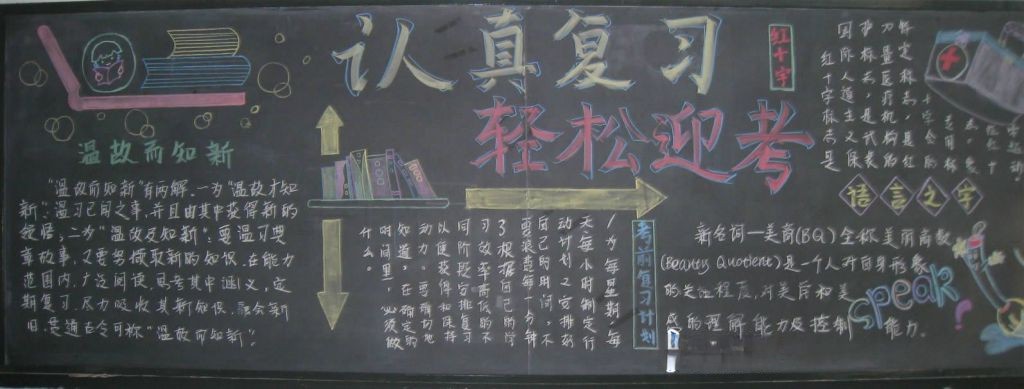 认真复习
轻松迎考
温故而知新
"温故而知新"有两解.一为"温故才知
新":温习已闻之事,并且由其中获得新的
领悟;二为"温故及知新":要温习典
章故事,又要努力撷取新的知识.在能力
范围内,广泛阅读,思考其中涵义,定
期复习,尽力吸收其新知识,融会新
旧,是通古今可称"温故而知新".
考前复习计划
1、为每星期、每
天、每小时制定行
动计划。2、安排好
自己的时间,不
要浪费每一分钟
3、根据自己的学
习效率高低的不
同阶段安排复习
以便获得和保持
动力。要确切地
知道,在确定的
时间里,必须做
什么。
红十字
红十字标志是
国际人道主义保
护标志,是武装
力量医疗机构的
特定标志,是红
语言之字
新名词—美商(BQ)全称美丽商数
(Beauty Quotient)是一个人对自身形象
的关注程度,对美学和美
感的理解能力及控制 能力。
speak
?